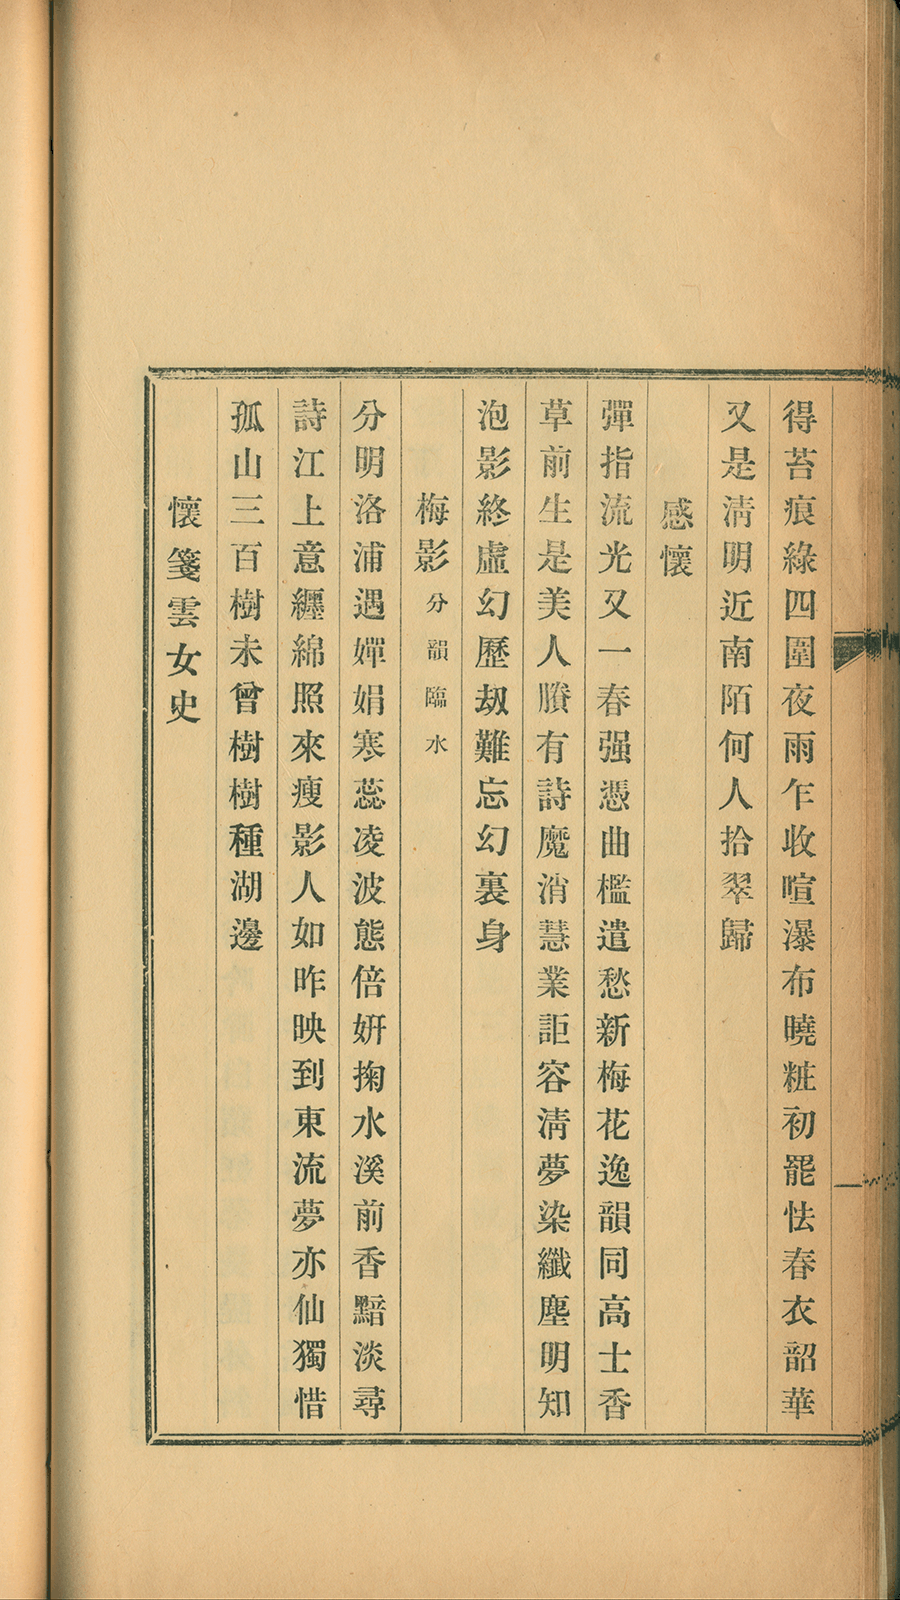 得苔痕綠四圍夜雨乍收喧瀑布曉粧初罷怯春衣韶華
又是淸明近南陌何人拾翠歸
感懷
彈指流光又一春强憑曲檻遣愁新梅花逸韻同高士香
草前生是美人賸有詩魔消慧業詎容淸夢染纖塵明知
泡影終虛幻歷刼難忘幻裏身
梅影分韻臨水
分明洛浦遇嬋娟寒蕊凌波態倍妍掬水溪前香黯淡尋
詩江上意纒綿照來瘦影人如昨映到東流夢亦仙獨惜
孤山三百樹未曾樹樹種湖邊
懷箋雲女史